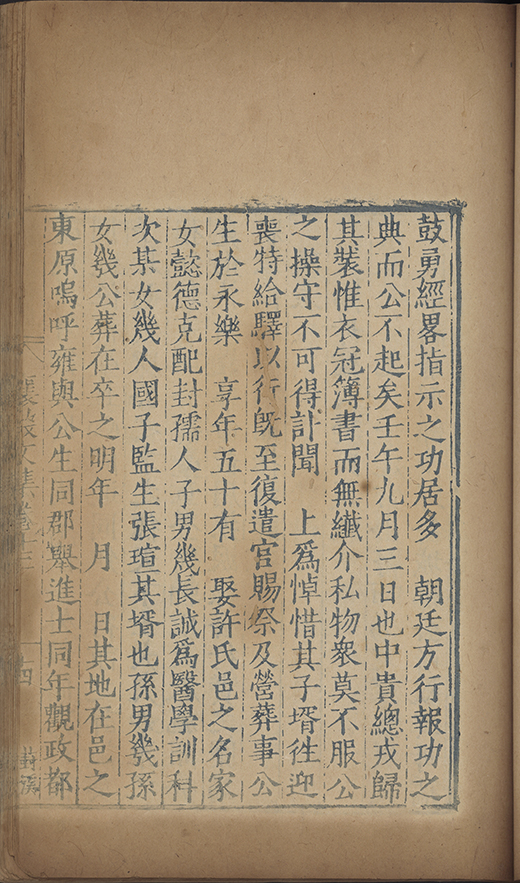 鼓勇經畧指示之功居多　朝廷方行報功之
典而公不起矣壬午九月三日也中貴總戎歸
其裝惟衣冠簿書而無纖介私物衆莫不服公
之操守不可得訃聞　上爲悼惜其子壻徃迎
喪特給驛以行旣至復遣官賜祭及營葬事公
生於永樂　享年五十有　娶許氏邑之名家
女懿德克配封孺人子男幾長誠爲醫學訓科
次某女幾人國子監生張瑄其壻也孫男幾孫
女幾公葬在卒之明年　月　日其地在邑之
東原嗚呼雍與公生同郡舉進士同年觀政都
襄毅文集卷十三
十四